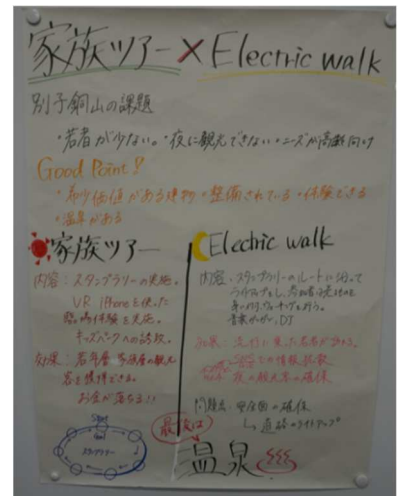 家族ツアー × Electric walk
別子銅山の課題
・若者が少ない。・夜に観光できない・ニーズが高齢向け
Good Point!
・希少価値がある建物・整備されている・体験できる
・温泉がある
家族ツアー
内容：スタンプラリーの実施。
VR iPhoneを使った
臨場体験を実施。
キッズパークへの誘致。
効果：若年層 家族層の観光
客を獲得できる。
お金が落ちる!!
スタンプラリー
Electric walk
内容、スタンプラリーのルートに沿って
音楽 DJ
効果：流行に乗った若者が来る。
SNSでの情報拡散
夜の観光客の確保
問題点：安全面の確保
↳道路のライトアップ
最後は
温泉